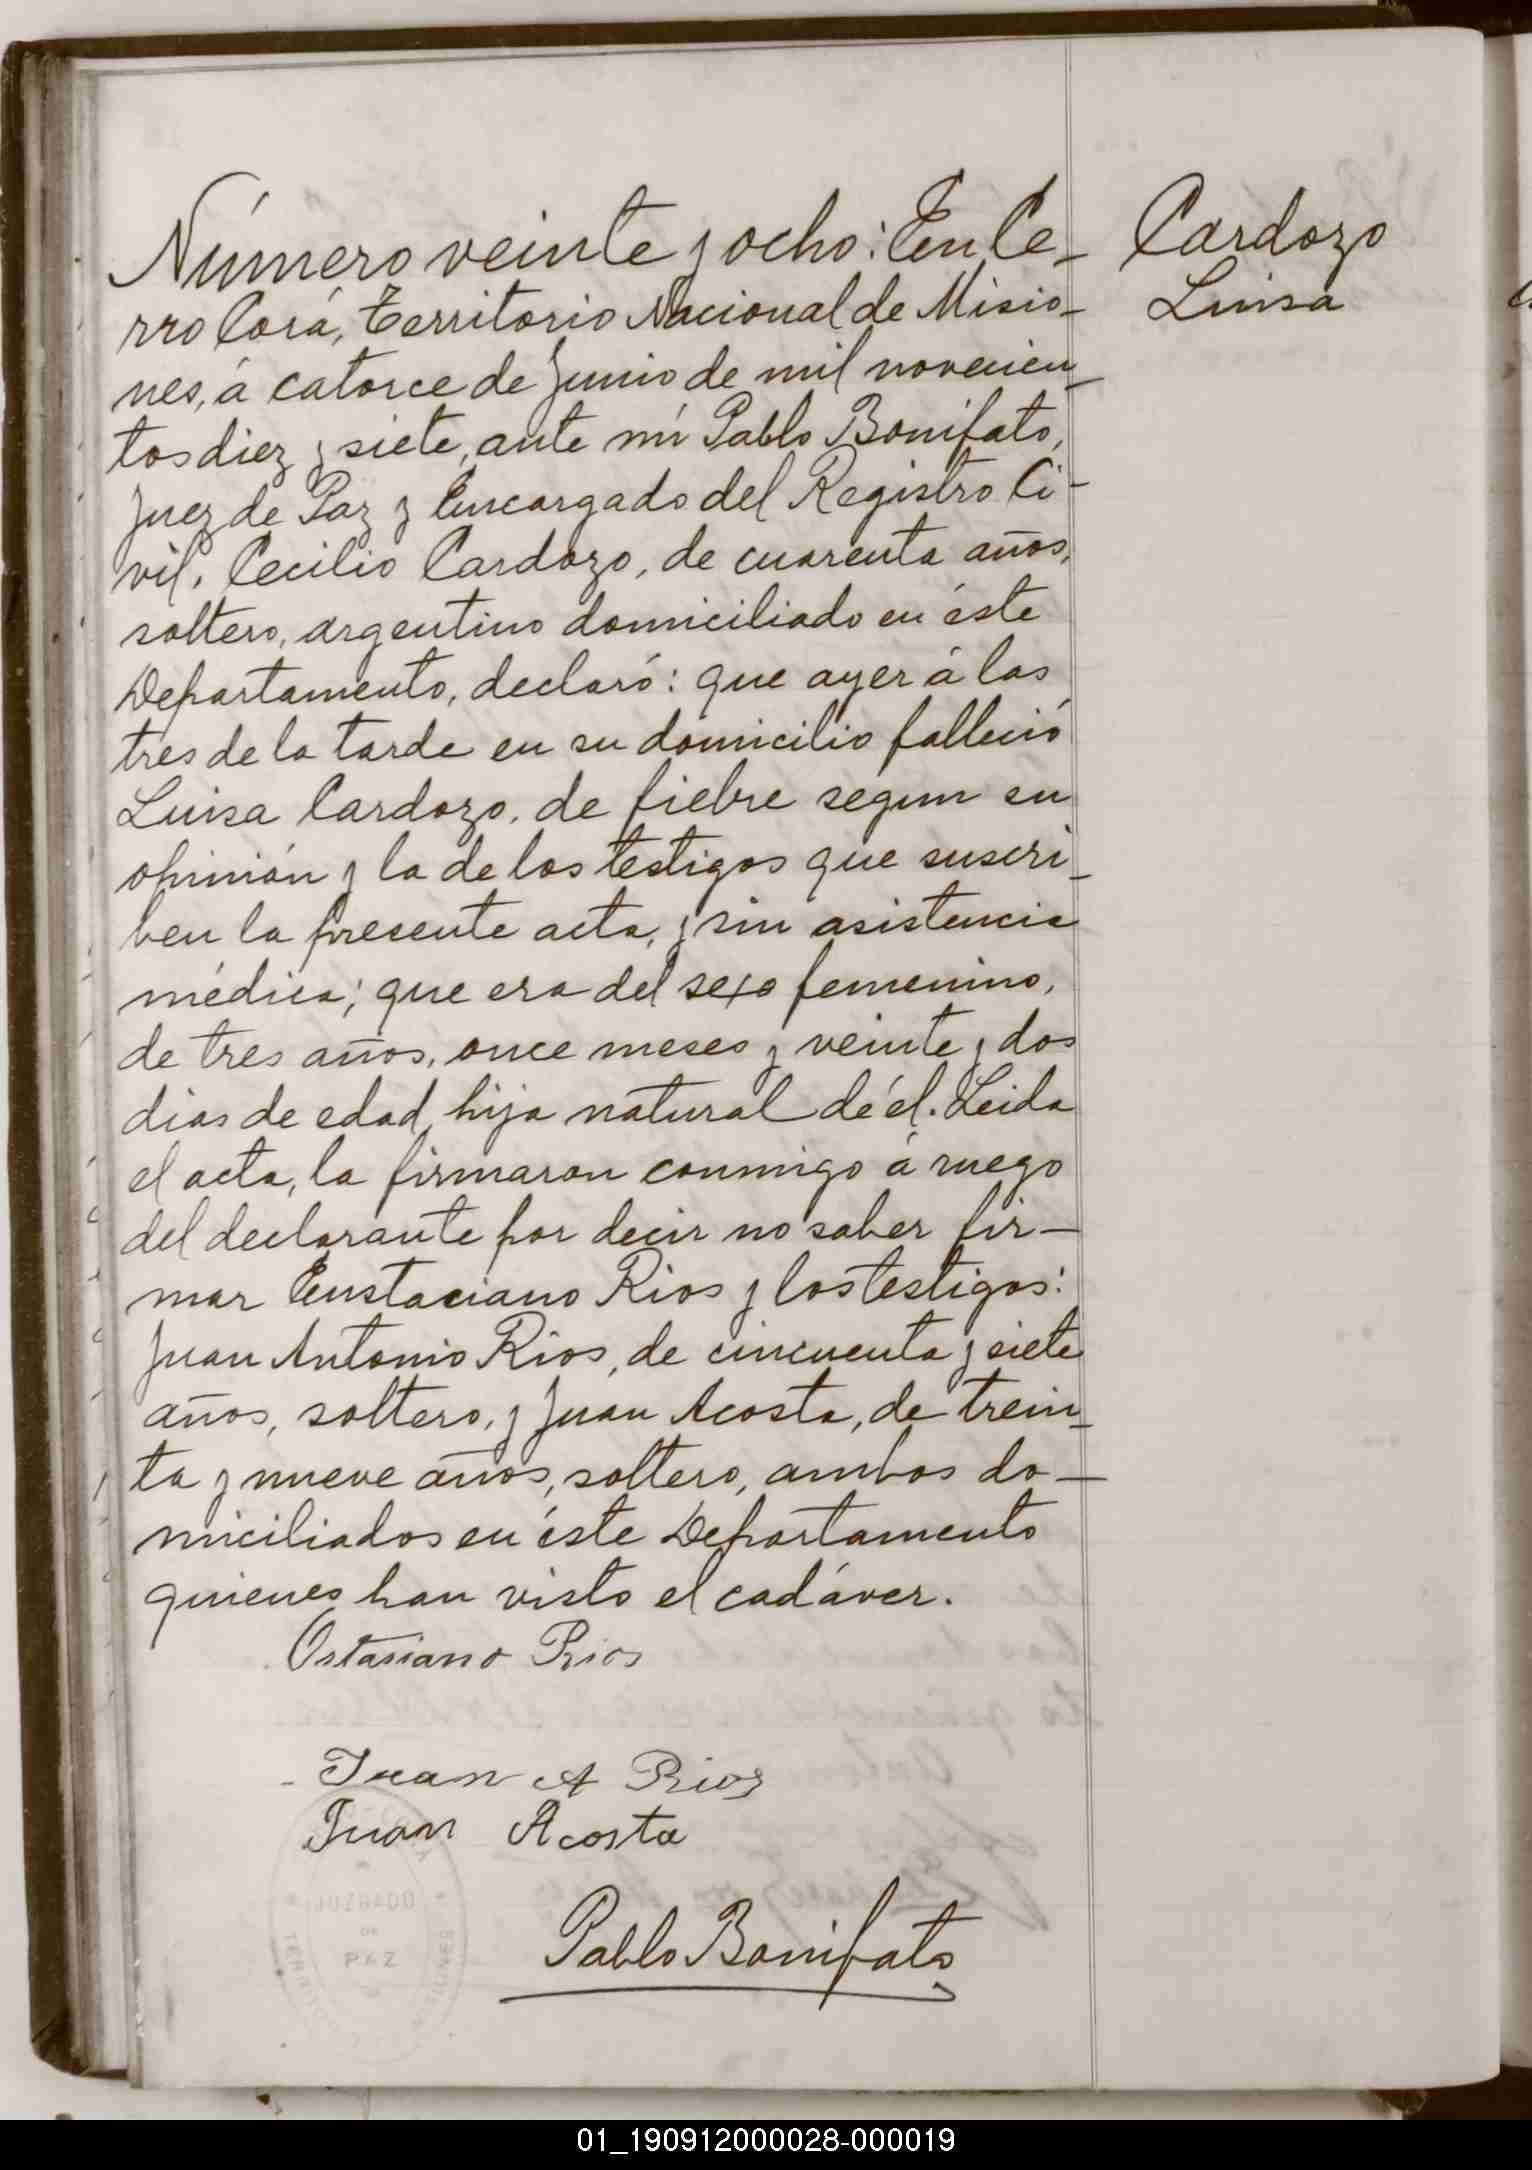 Número veinte y ocho: En Ce-
rro Corá, Territorio Nacional de Misio-
nes, á catorce de Junio de mil novecien-
tos diez y siete, ante mí Pablo Bonifato,
Juez de Paz y Encargado del Registro Ci-
vil, Cecilio Cardozo, de cuarenta años,
soltero, argentino domiciliado en éste
Departamento, declaró: que ayer á las
tres de la tarde en su domicilio falleció
Luisa Cardozo, de fiebre segun su
opinión y la de los testigos que suscri-
ben la presente acta, y sin asistencia
médica; que era del sexo femenino,
de tres años, once meses y veinte y dos
dias de edad, hija natural de él. Leida
el acta, la firmaron conmigo á ruego
del declarante por decir no saber fir-
mar Eustaciano Rios y los testigos:
Juan Antonio Rios, de cincuenta y siete
años, soltero, y Juan Acosta, de trein-
ta y nueve años, soltero, ambos do-
miciliados en éste Departamento
quienes han visto el cadáver.
Ostasiano Rios
Juan A Rios
Juan Acosta
Pablo Bonifato
Cardozo
Luisa
JUZGADO
DE
PAZ
01_190912000028-000019